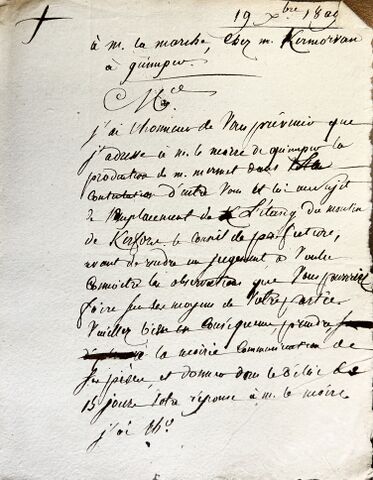 19 Xbre 1809
à m. la marche, chez m. Kermorvan
à quimper
M.
j'ai l'honneur de vous prévenir que
j'adresse à m. le maire de quimper la
production de m. mermet dans la
contestation d'entre vous et lui au sujet
de l'emplacement de l'étang du moulin
de le conseil de préfecture,
avant de rendre un jugement a voulu
connoître les observations que vous pourriez
faire sur les moyens de votre partie
veuillez bien en conséquence prendre
à la mairie communication de
ses pièces, et donner dans le délai de
15 jours votre réponse à m. le maire
j'ai l'hr